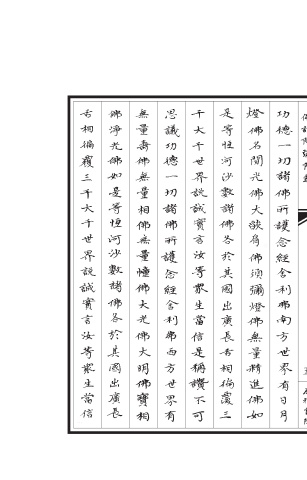 功德一切諸佛所護念經舍利弗南方世界有日月
燈佛名聞光佛大燄肩佛須彌燈佛無量精進佛如
是等恒河沙數諸佛各於其國出廣長舌相徧覆三
千大千世界說誠實言汝等眾生當信是稱讚不可
思議功德一切諸佛所護念經舍利弗西方世界有
無量壽佛無量相佛無量幢佛大光佛大明佛寶相
佛淨光佛如是等恒河沙數諸佛各於其國出廣長
舌相徧覆三千大千世界說誠實言汝等眾生當信